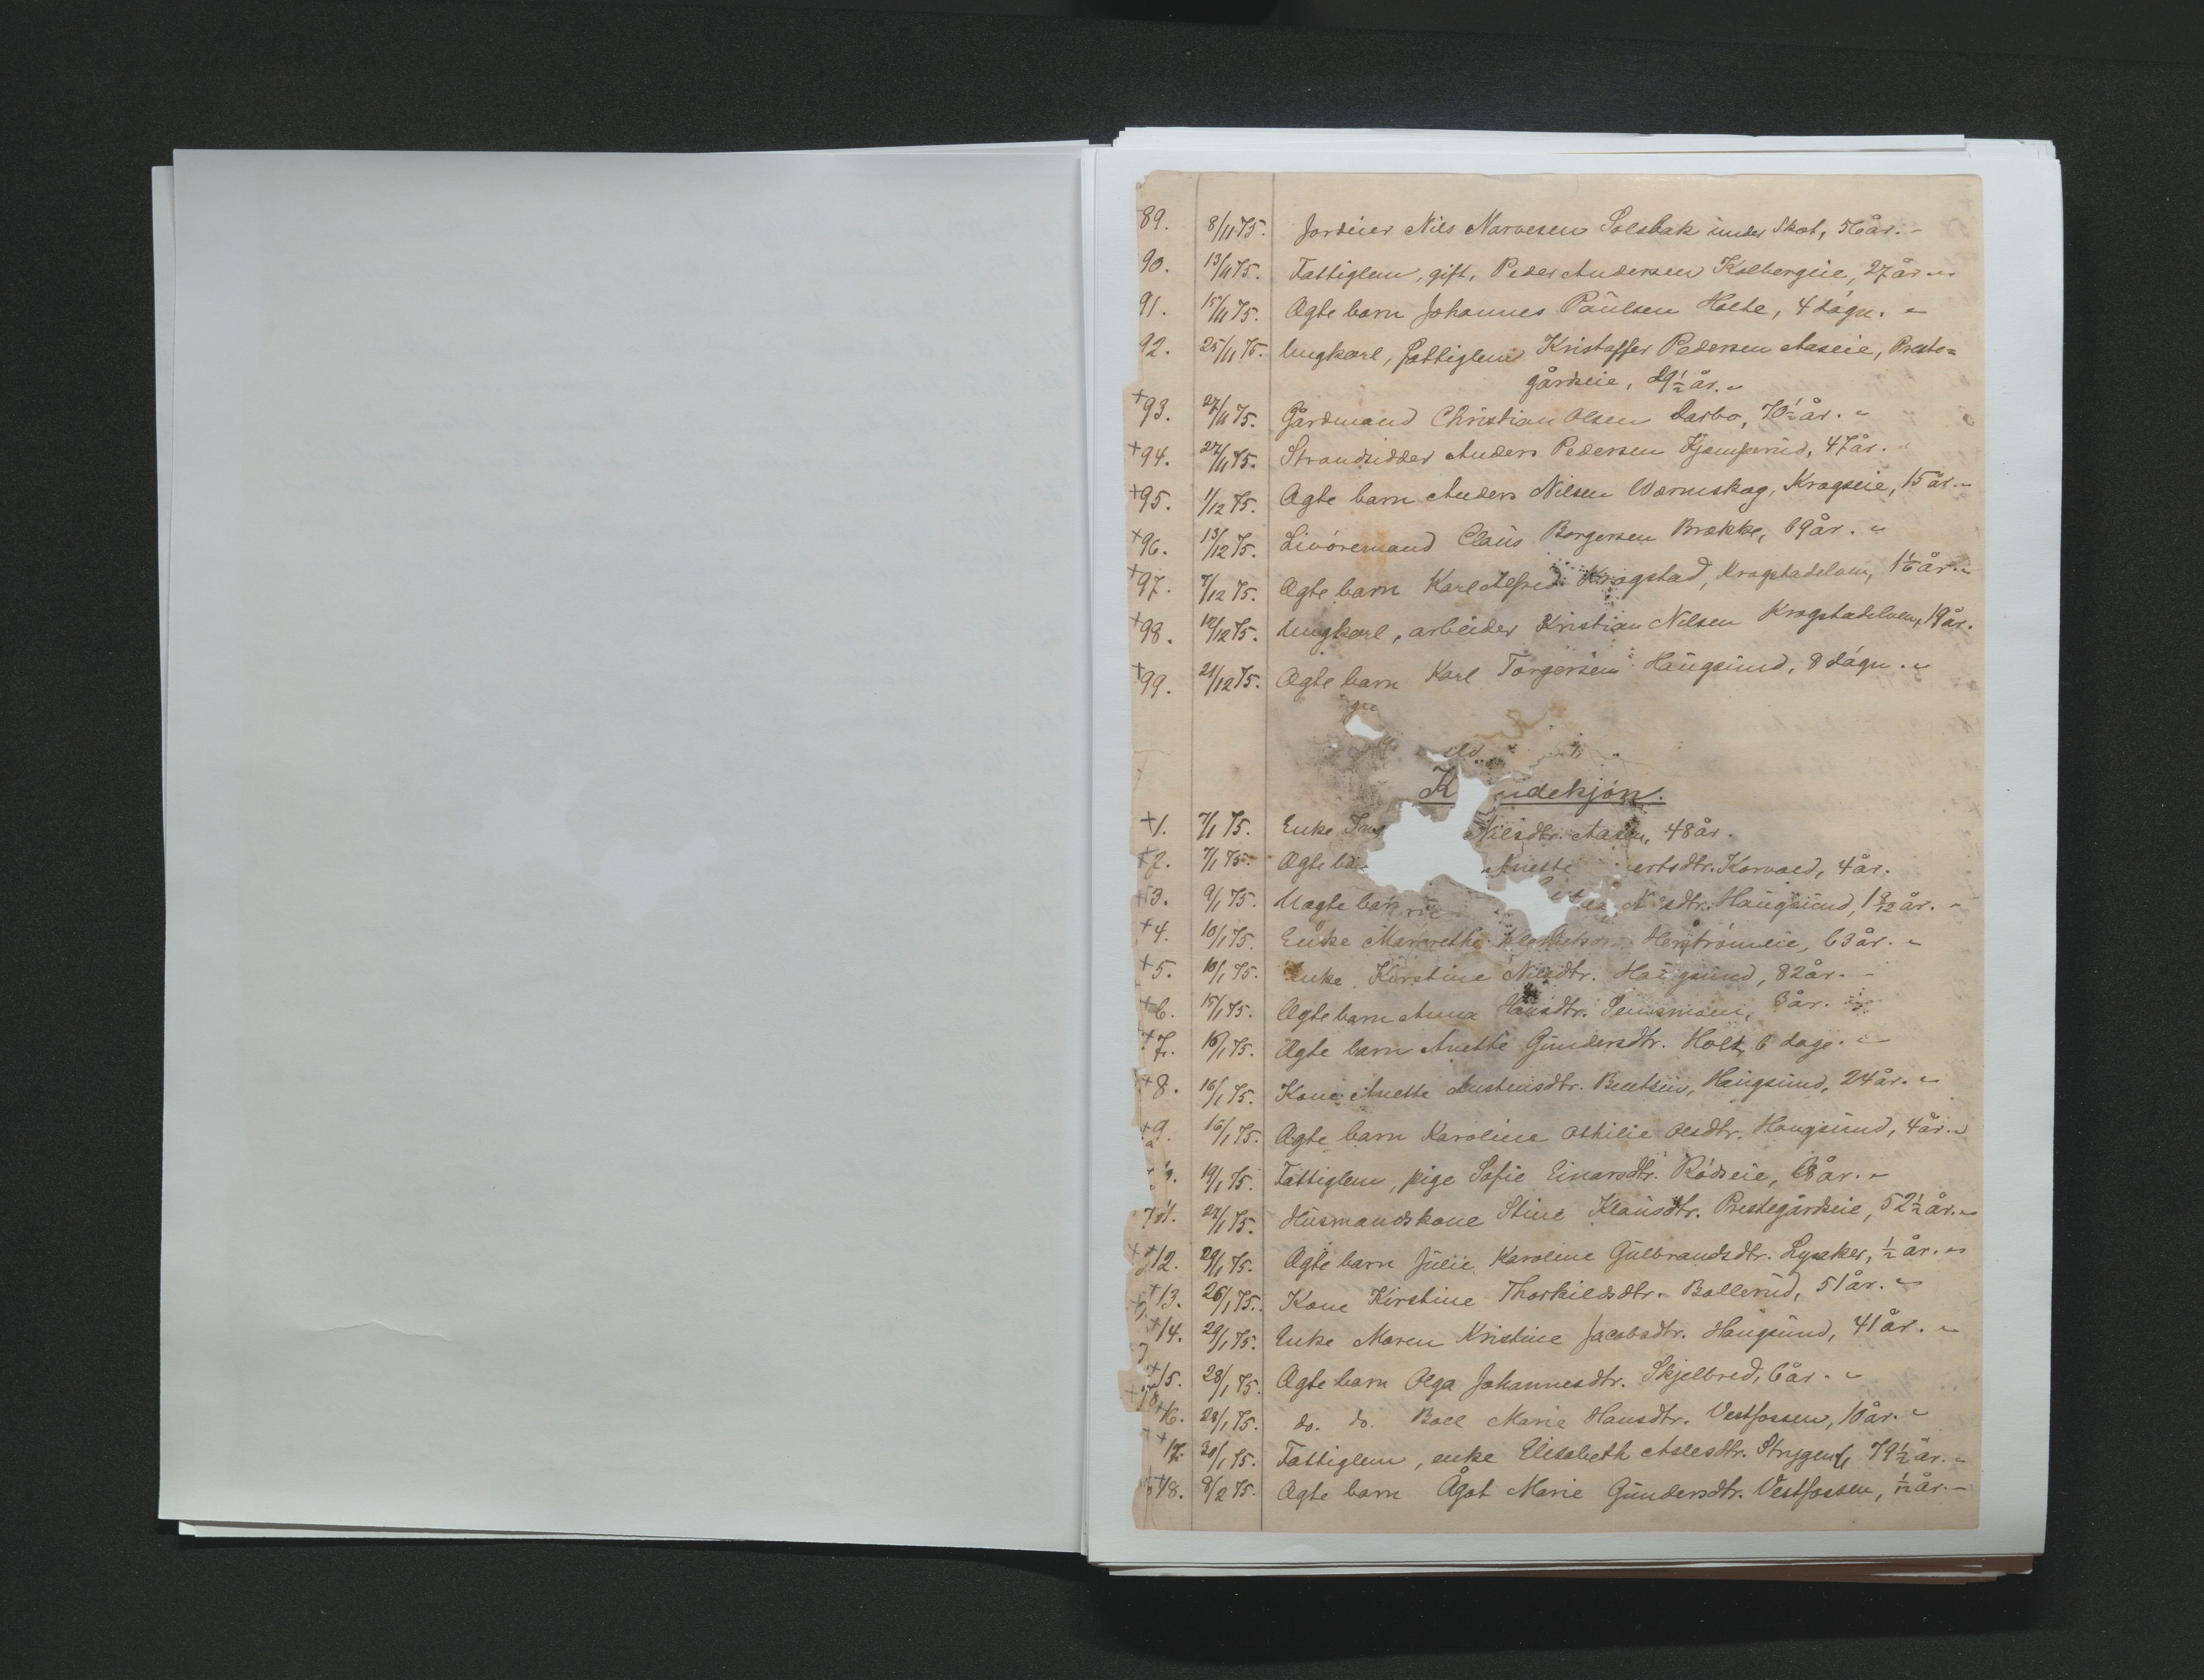 89. 8/11 75. Jordeier Nils Narvesen Solsbak under Skot, 56 år. "
90. 13/11 75. Fattiglem, gift, Peder Andersen Kolbergeie, 27 år "
91. 15/11 75. Ægte barn Johannes Paulsen Holte, 4 døgn. "
92. 25/11 75. Ungkarl, fattiglem Kristoffer Pedersen Aaseie, Preste=
gårdseie, 29 1/2 år. "
+93. 27/11 75. Gårdmand Christian Olsen Darbo, 70 1/2 år. "
+94. 27/11 75. Strandsidder Anders Pedersen Kjemperud, 47 år. "
+95. 1/12 75. Ægte barn Anders Nilsen Wormskog, Krogseie, 15 år. "
+96. 13/12 75. Livøremand Claus Borgersen Brække, 69 år. "
+97. 7/12 75. Ægte barn Karl Alfred Krogstad, Krogstadelven, 1 1/6 år. "
+98. 12/12 75. Ungkarl, arbeider Kristian Nilsen Krogstadelven, 19 år.
+99. 21/12 75. Ægte barn Karl Torgersen Haugsund, 8 døgn. "
K indekjøn.
+1. 7/1 75. Enke Nilsdtr. Aasen, 48 år.
+2. 7/1 75. Ægte ba Anette ertsdtr. Korvald, 4 år.
+3. 9/1 75. Uægte barn sdtr. Haugsund, 1 9/12 år. "
+4. 10/1 75. Enke Margrethe Herstrømeie, 63 år. "
+5. 10/1 75. Enke Kirstine Nilsdtr. Haugsund, 82 år. "
+6. 15/1 75. Ægte barn Anna Hansdtr. 3 år.
+7. 16/1 75. Ægte barn Anette Gundersdtr. Holt, 6 dage. "
+8. 16/1 75. Kone Anette Austensdtr. Bentsen, Haugsund, 24 år. "
+9. 16/1 75. Ægte barn Karoline Othilie Olsdtr. Haugsund, 4 år. "
19/1 75. Fattiglem, pige Sofie Einarsdtr. Rødseie, 68 år. "
11. 27/1 75. Husmandskone Stine Klausdtr. Prestegårdseie, 52 1/2 år. "
+12. 29/1 75. Ægte barn Julie Karoline Gulbrandsdtr. Lysaker, 1/2 år. "
+13. 26/1 75. Kone Kirstine Thorkildsdtr. Bollerud, 51 år. "
+14. 29/1 75. Enke Maren Kristine Jacobsdtr. Haugsund, 41 år. "
+15. 28/1 75. Ægte barn Olga Johannesdtr. Skjelbred, 6 år. "
+16. 28/1 75. do. do. Boel Marie Hansdtr. Vestfossen, 10 år. "
+17. 30/1 75. Fattiglem, enke Elisabeth Aslesdtr. 79 1/2 år. "
+18. 8/2 75. Ægte barn Ågot Marie Gundersdtr. Vestfossen, 1/12 år. "